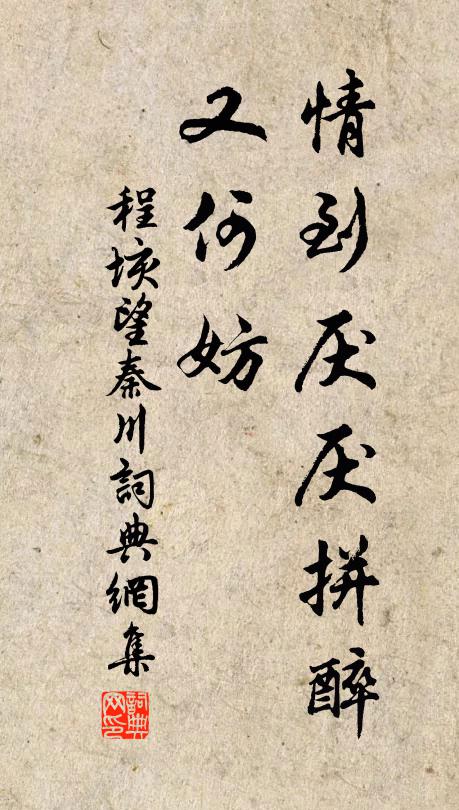 情到厌厌拼醉
又何妨
程垓望秦川詞典網集
詞典
网印